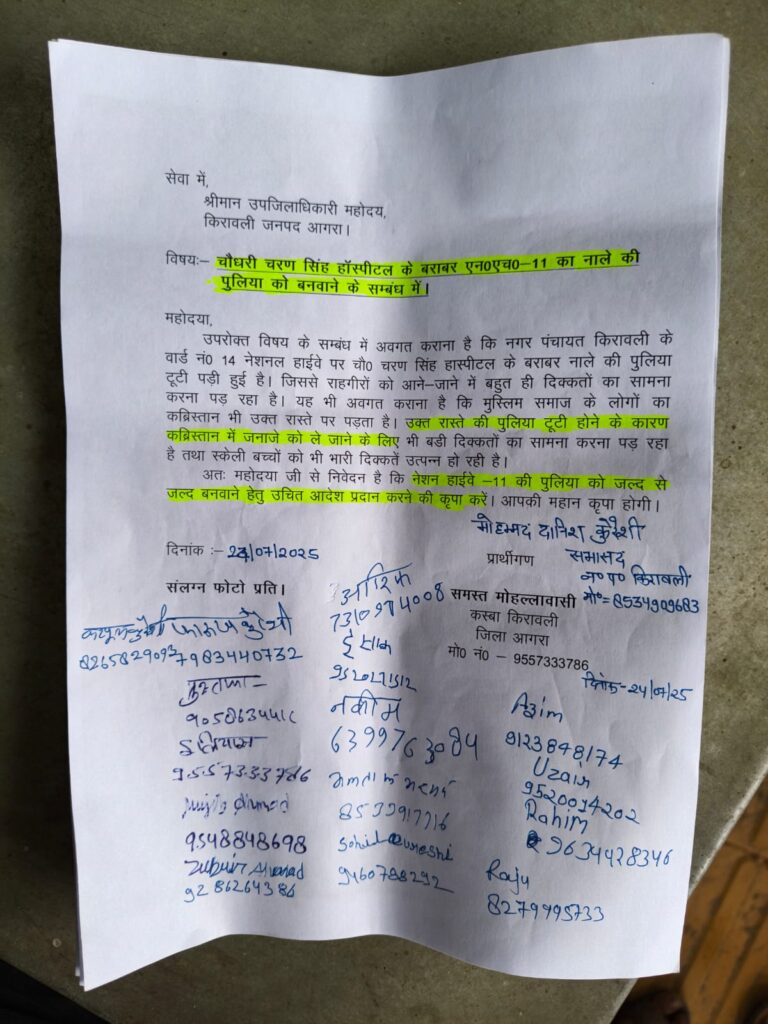 सेवा में,
श्रीमान उपजिलाधिकारी महोदय,
किरावली जनपद आगरा।
विषयः– चौधरी चरण सिंह हॉस्पीटल के बराबर एन0एच0–11 का नाले की
पुलिया को बनवाने के सम्बंध में।
महोदया,
उपरोक्त विषय के सम्बंध में अवगत कराना है कि नगर पंचायत किरावली के
वार्ड नं0 14 नेशनल हाईवे पर चौ0 चरण सिंह हास्पीटल के बराबर नाले की पुलिया
टूटी पड़ी हुई है। जिससे राहगीरों को आने–जाने में बहुत ही दिक्कतों का सामना
करना पड़ रहा है। यह भी अवगत कराना है कि मुस्लिम समाज के लोगों का
कब्रिस्तान भी उक्त रास्ते पर पड़ता है। उक्त रास्ते की पुलिया टूटी होने के कारण
कब्रिस्तान में जनाजे को ले जाने के लिए भी बडी दिक्कतों का सामना करना पड़ रहा
है तथा स्केली बच्चों को भी भारी दिक्कतें उत्पन्न हो रही है।
अतः महोदया जी से निवेदन है कि नेशन हाईवे –11 की पुलिया को जल्द से
जल्द बनवाने हेतु उचित आदेश प्रदान करने की कृपा करें। आपकी महान कृपा होगी।
मोहम्मद दानिश कुरैशी
दिनांक :– 24/07/2025
प्रार्थीगण
सभासद
न० प० किरावली
मो०= 8534909683
संलग्न फोटो प्रति।
समस्त मोहल्लावासी
कस्बा किरावली
जिला आगरा
मो0 नं0 – 9557333786
दिनांक-24/07/25
7983440732
नकीम
6399763084
9557333786
9548848698
Zubair Ahmad
9286264386
Sohil Qureshi
9460788292
Azim
9123848174
Uzair
9520014202
Rahim
9634428346
Raju
8279995733